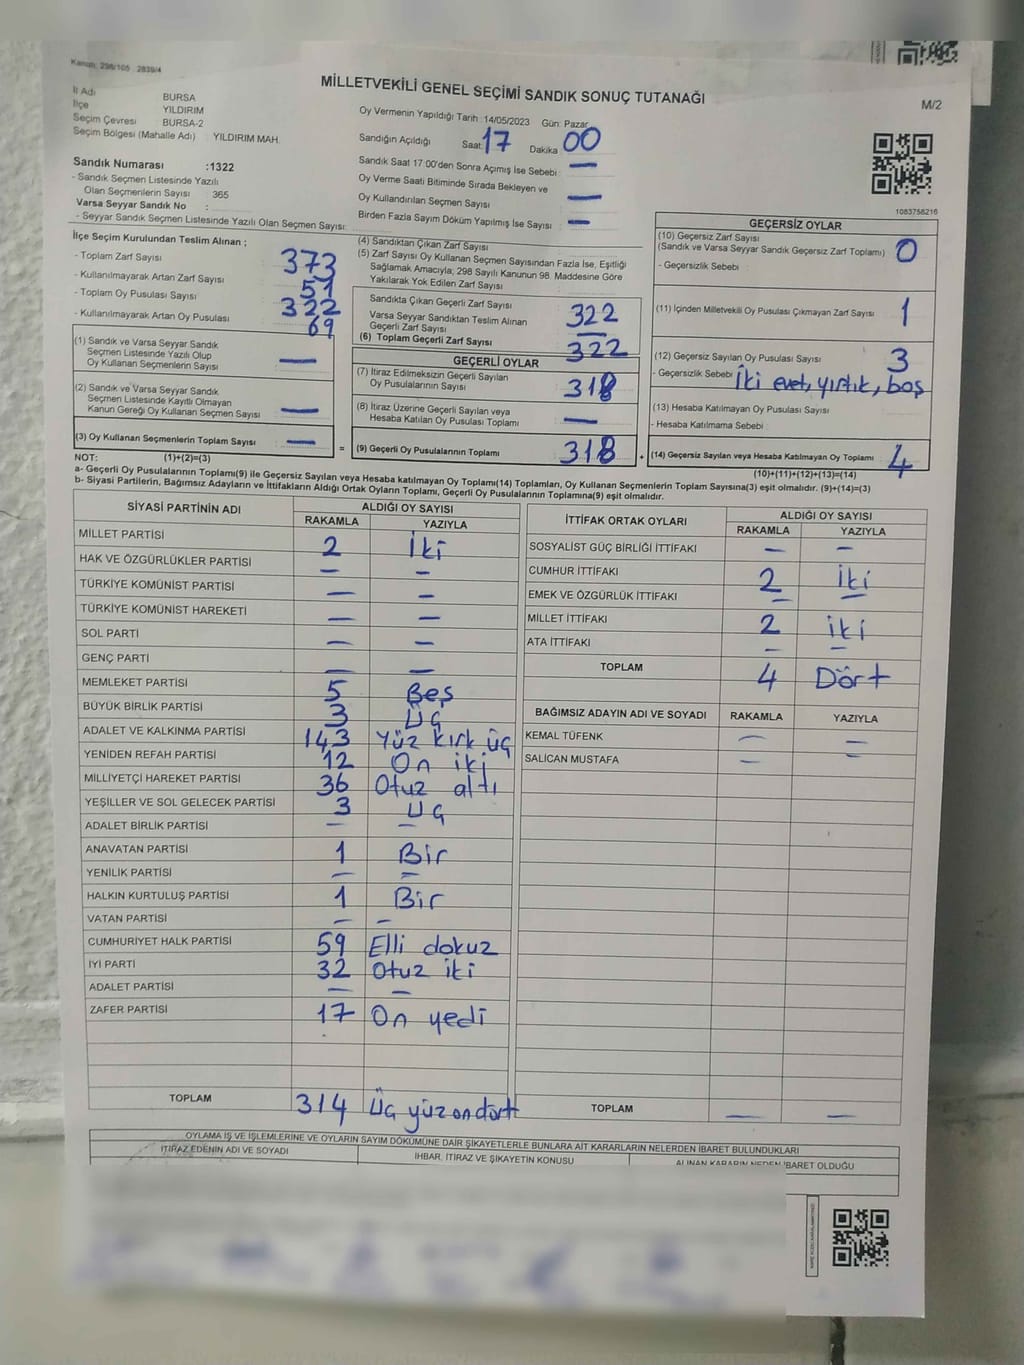 Kanun: 298/105 2839/4
MİLLETVEKİLİ GENEL SEÇİMİ SANDIK SONUÇ TUTANAĞI
M/2
İl Adı BURSA
İlçe YILDIRIM
Seçim Çevresi BURSA-2
Seçim Bölgesi (Mahalle Adı) YILDIRIM MAH.
Sandık Numarası :1322
- Sandık Seçmen Listesinde Yazılı
Olan Seçmenlerin Sayısı 365
Varsa Seyyar Sandık No :
- Seyyar Sandık Seçmen Listesinde Yazılı Olan Seçmen Sayısı:
Oy Vermenin Yapıldığı Tarih :14/05/2023 Gün: Pazar
Sandığın Açıldığı Saat: 17 Dakika 00
Sandık Saat 17:00'den Sonra Açımış İse Sebebi: —
Oy Verme Saati Bitiminde Sırada Bekleyen ve
Oy Kullandırılan Seçmen Sayısı : —
Birden Fazla Sayım Döküm Yapılmış İse Sayısı : —
1083758216
İlçe Seçim Kurulundan Teslim Alınan ;
- Toplam Zarf Sayısı : 373
- Kullanılmayarak Artan Zarf Sayısı : 51
- Toplam Oy Pusulası Sayısı : 322
- Kullanılmayarak Artan Oy Pusulası : 69
(1) Sandık ve Varsa Seyyar Sandık
Seçmen Listesinde Yazılı Olup
Oy Kullanan Seçmenlerin Sayısı : —
(2) Sandık ve Varsa Seyyar Sandık
Seçmen Listesinde Kayıtlı Olmayan
Kanun Gereği Oy Kullanan Seçmen Sayısı : —
(3) Oy Kullanan Seçmenlerin Toplam Sayısı : — =
(4) Sandıktan Çıkan Zarf Sayısı
(5) Zarf Sayısı Oy Kullanan Seçmen Sayısından Fazla İse, Eşitliği
Sağlamak Amacıyla, 298 Sayılı Kanunun 98. Maddesine Göre
Yakılarak Yok Edilen Zarf Sayısı :
Sandıkta Çıkan Geçerli Zarf Sayısı : 322
Varsa Seyyar Sandıktan Teslim Alınan
Geçerli Zarf Sayısı : —
(6) Toplam Geçerli Zarf Sayısı : 322
GEÇERLİ OYLAR
(7) İtiraz Edilmeksizin Geçerli Sayılan
Oy Pusulalarının Sayısı : 318
(8) İtiraz Üzerine Geçerli Sayılan veya
Hesaba Katılan Oy Pusulası Toplamı : —
(9) Geçerli Oy Pusulalarının Toplamı : 318 +
GEÇERSİZ OYLAR
(10) Geçersiz Zarf Sayısı
(Sandık ve Varsa Seyyar Sandık Geçersiz Zarf Toplamı) : 0
- Geçersizlik Sebebi :
(11) İçinden Milletvekili Oy Pusulası Çıkmayan Zarf Sayısı : 1
(12) Geçersiz Sayılan Oy Pusulası Sayısı : 3
- Geçersizlik Sebebi : İki evet, yırtık, boş
(13) Hesaba Katılmayan Oy Pusulası Sayısı :
- Hesaba Katılmama Sebebi :
(14) Geçersiz Sayılan veya Hesaba Katılmayan Oy Toplamı : 4
NOT: (1)+(2)=(3)
(10)+(11)+(12)+(13)=(14)
a- Geçerli Oy Pusulalarının Toplamı(9) ile Geçersiz Sayılan veya Hesaba katılmayan Oy Toplamı(14) Toplamları, Oy Kullanan Seçmenlerin Toplam Sayısına(3) eşit olmalıdır. (9)+(14)=(3)
b- Siyasi Partilerin, Bağımsız Adayların ve İttifakların Aldığı Ortak Oyların Toplamı, Geçerli Oy Pusulalarının Toplamına(9) eşit olmalıdır.
SİYASİ PARTİNİN ADI ALDIĞI OY SAYISI
RAKAMLA YAZIYLA
MİLLET PARTİSİ 2 İki
HAK VE ÖZGÜRLÜKLER PARTİSİ — —
TÜRKİYE KOMÜNİST PARTİSİ — —
TÜRKİYE KOMÜNİST HAREKETİ — —
SOL PARTİ — —
GENÇ PARTİ — —
MEMLEKET PARTİSİ 5 Beş
BÜYÜK BİRLİK PARTİSİ 3 Üç
ADALET VE KALKINMA PARTİSİ 143 Yüz kırk üç
YENİDEN REFAH PARTİSİ 12 On iki
MİLLİYETÇİ HAREKET PARTİSİ 36 Otuz altı
YEŞİLLER VE SOL GELECEK PARTİSİ 3 Üç
ADALET BİRLİK PARTİSİ — —
ANAVATAN PARTİSİ 1 Bir
YENİLİK PARTİSİ — —
HALKIN KURTULUŞ PARTİSİ 1 Bir
VATAN PARTİSİ — —
CUMHURİYET HALK PARTİSİ 59 Elli dokuz
İYİ PARTİ 32 Otuz iki
ADALET PARTİSİ — —
ZAFER PARTİSİ 17 On yedi
TOPLAM 314 Üç yüz on dört
İTTİFAK ORTAK OYLARI ALDIĞI OY SAYISI
RAKAMLA YAZIYLA
SOSYALİST GÜÇ BİRLİĞİ İTTİFAKI — —
CUMHUR İTTİFAKI 2 İki
EMEK VE ÖZGÜRLÜK İTTİFAKI — —
MİLLET İTTİFAKI 2 iki
ATA İTTİFAKI — —
TOPLAM 4 Dört
BAĞIMSIZ ADAYIN ADI VE SOYADI RAKAMLA YAZIYLA
KEMAL TÜFENK — —
SALİCAN MUSTAFA — —
TOPLAM — —
OYLAMA İŞ VE İŞLEMLERİNE VE OYLARIN SAYIM DÖKÜMÜNE DAİR ŞİKAYETLERLE BUNLARA AİT KARARLARIN NELERDEN İBARET BULUNDUKLARI
İTİRAZ EDENİN ADI VE SOYADI İHBAR, İTİRAZ VE ŞİKAYETİN KONUSU ALINAN KARARIN NEDEN İBARET OLDUĞU